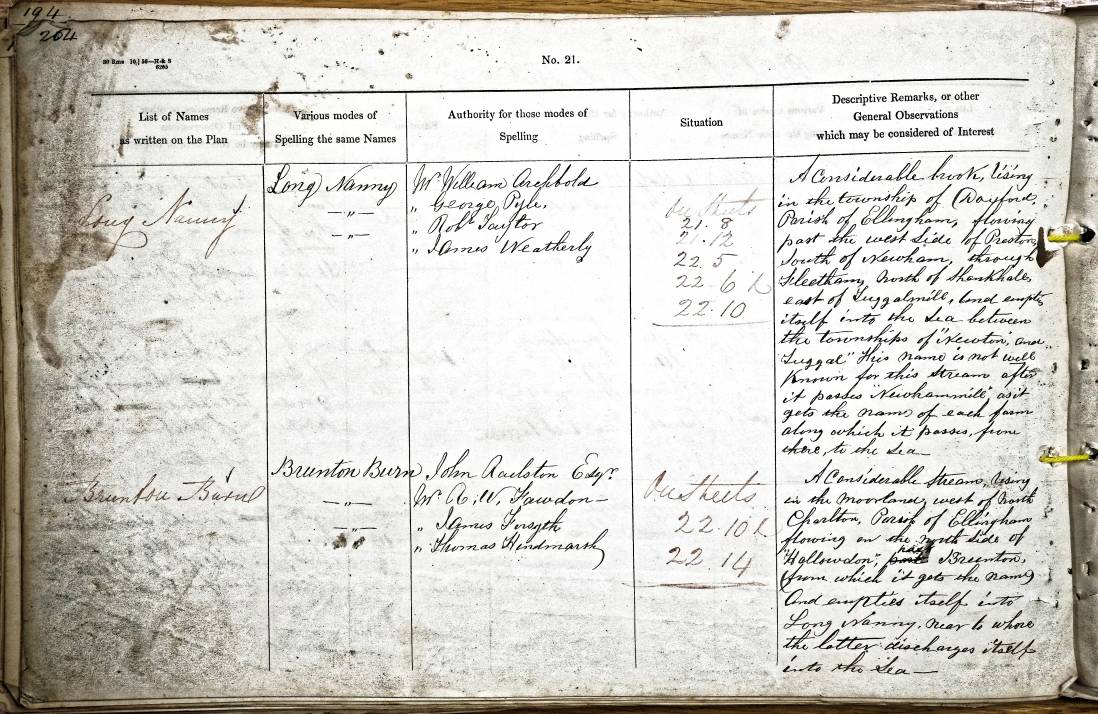 194
204
No. 21.
List of Names
as written on the Plan
Various modes of
Spelling the same Names
Authority for those modes of
Spelling
Situation
Descriptive Remarks, or other
General Observations
which may be considered of Interest
Long Nanny
Long Nanny
—"—
—"—
Mr William Archbold
" George Pyle,
" Robt Taylor
" James Weatherly
On Sheets
21. 8
21. 12
22. 5
22. 6
22. 10
A Considerable brook, rising
in the township of Doxford,
Parish of Ellingham, flowing
past the west side of Preston,
South of Newham, through
Fleetham, North of Shankhale,
east of Tuggalmill, and empties
itself into the Sea between
the townships of "Newton", and
"Tuggal" This name is not well
known for this stream after
it passes "Newhammill", as it
gets the name of each farm
along which it passes, from
there, to the Sea—
Brunton Burn
Brunton Burn
—"—
—"—
John Railston Esqr.
Mr R. W. Fawdon—
" James Forsyth
" Thomas Hindmarsh
On Sheets
22. 10
22. 14
A Considerable Stream, rising
in the Moorland, west of North
Charlton, Parish of Ellingham
flowing on the north side of
"Fallowdon", past Brunton,
(from which it gets the name)
And empties itself into
Long Nanny, near to where
the latter discharges itself
into the Sea—